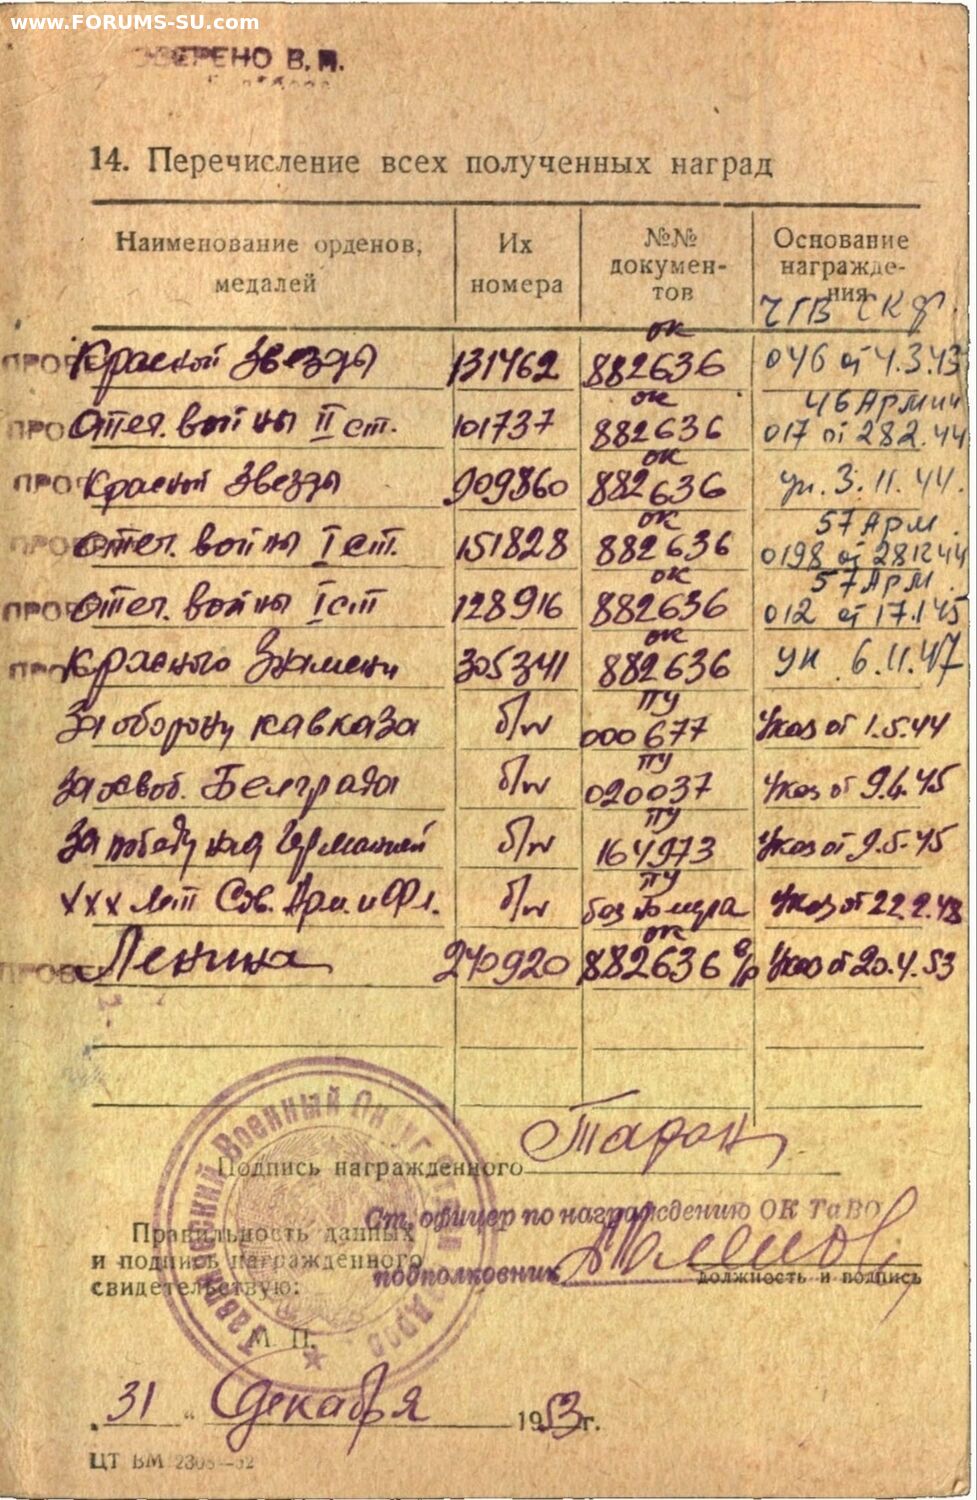 www.FORUMS-SU.com
ВЕРЕНО В. П.
14. Перечисление всех полученных наград
Наименование орденов, медалей
Их номера
№№ докумен-тов
Основание награжде-ния
ЧГВ СКФ.
ПРОВ Красной Звезды 131462 ОК 882636 046 от 4.3.43
46 Армии
ПРО Отеч. войны II ст. 101737 ОК 882636 017 от 28 2. 44
ПРОВ Красной Звезды 909860 ОК 882636 ук. 3. 11. 44.
57 Арм.
ПРОВ Отеч. войны I ст. 151828 ОК 882636 0198 от 28 12 44
57 Арм.
ПРОВ Отеч. войны I ст 128916 ОК 882636 012 от 17.1.45
ПРО Красного Знамени 305341 ОК 882636 ук 6. 11. 47
За оборону Кавказа б/н ПУ 000677 Указ от 1.5.44
За освоб. Белграда б/н ПУ 020037 Указ от 9.6.45
За победу над Германией б/н ПУ 164973 Указ от 9.5.45
XXX лет Сов. Арм. и Фл. б/н ПУ без номера Указ от 22.2.48
ПРОВ Ленина 240920 ОК 882636 Указ от 20.4.53
Таврический Военный Округ
Подпись награжденного Таран
Ст. офицер по награждению ОК ТаВО
Правильность данных
и подпись награжденного
свидетельствую:
подполковник
должность и подпись
М. П.
„ 31 “ Декабря 1953 г.
ЦТ ВМ 2308—52